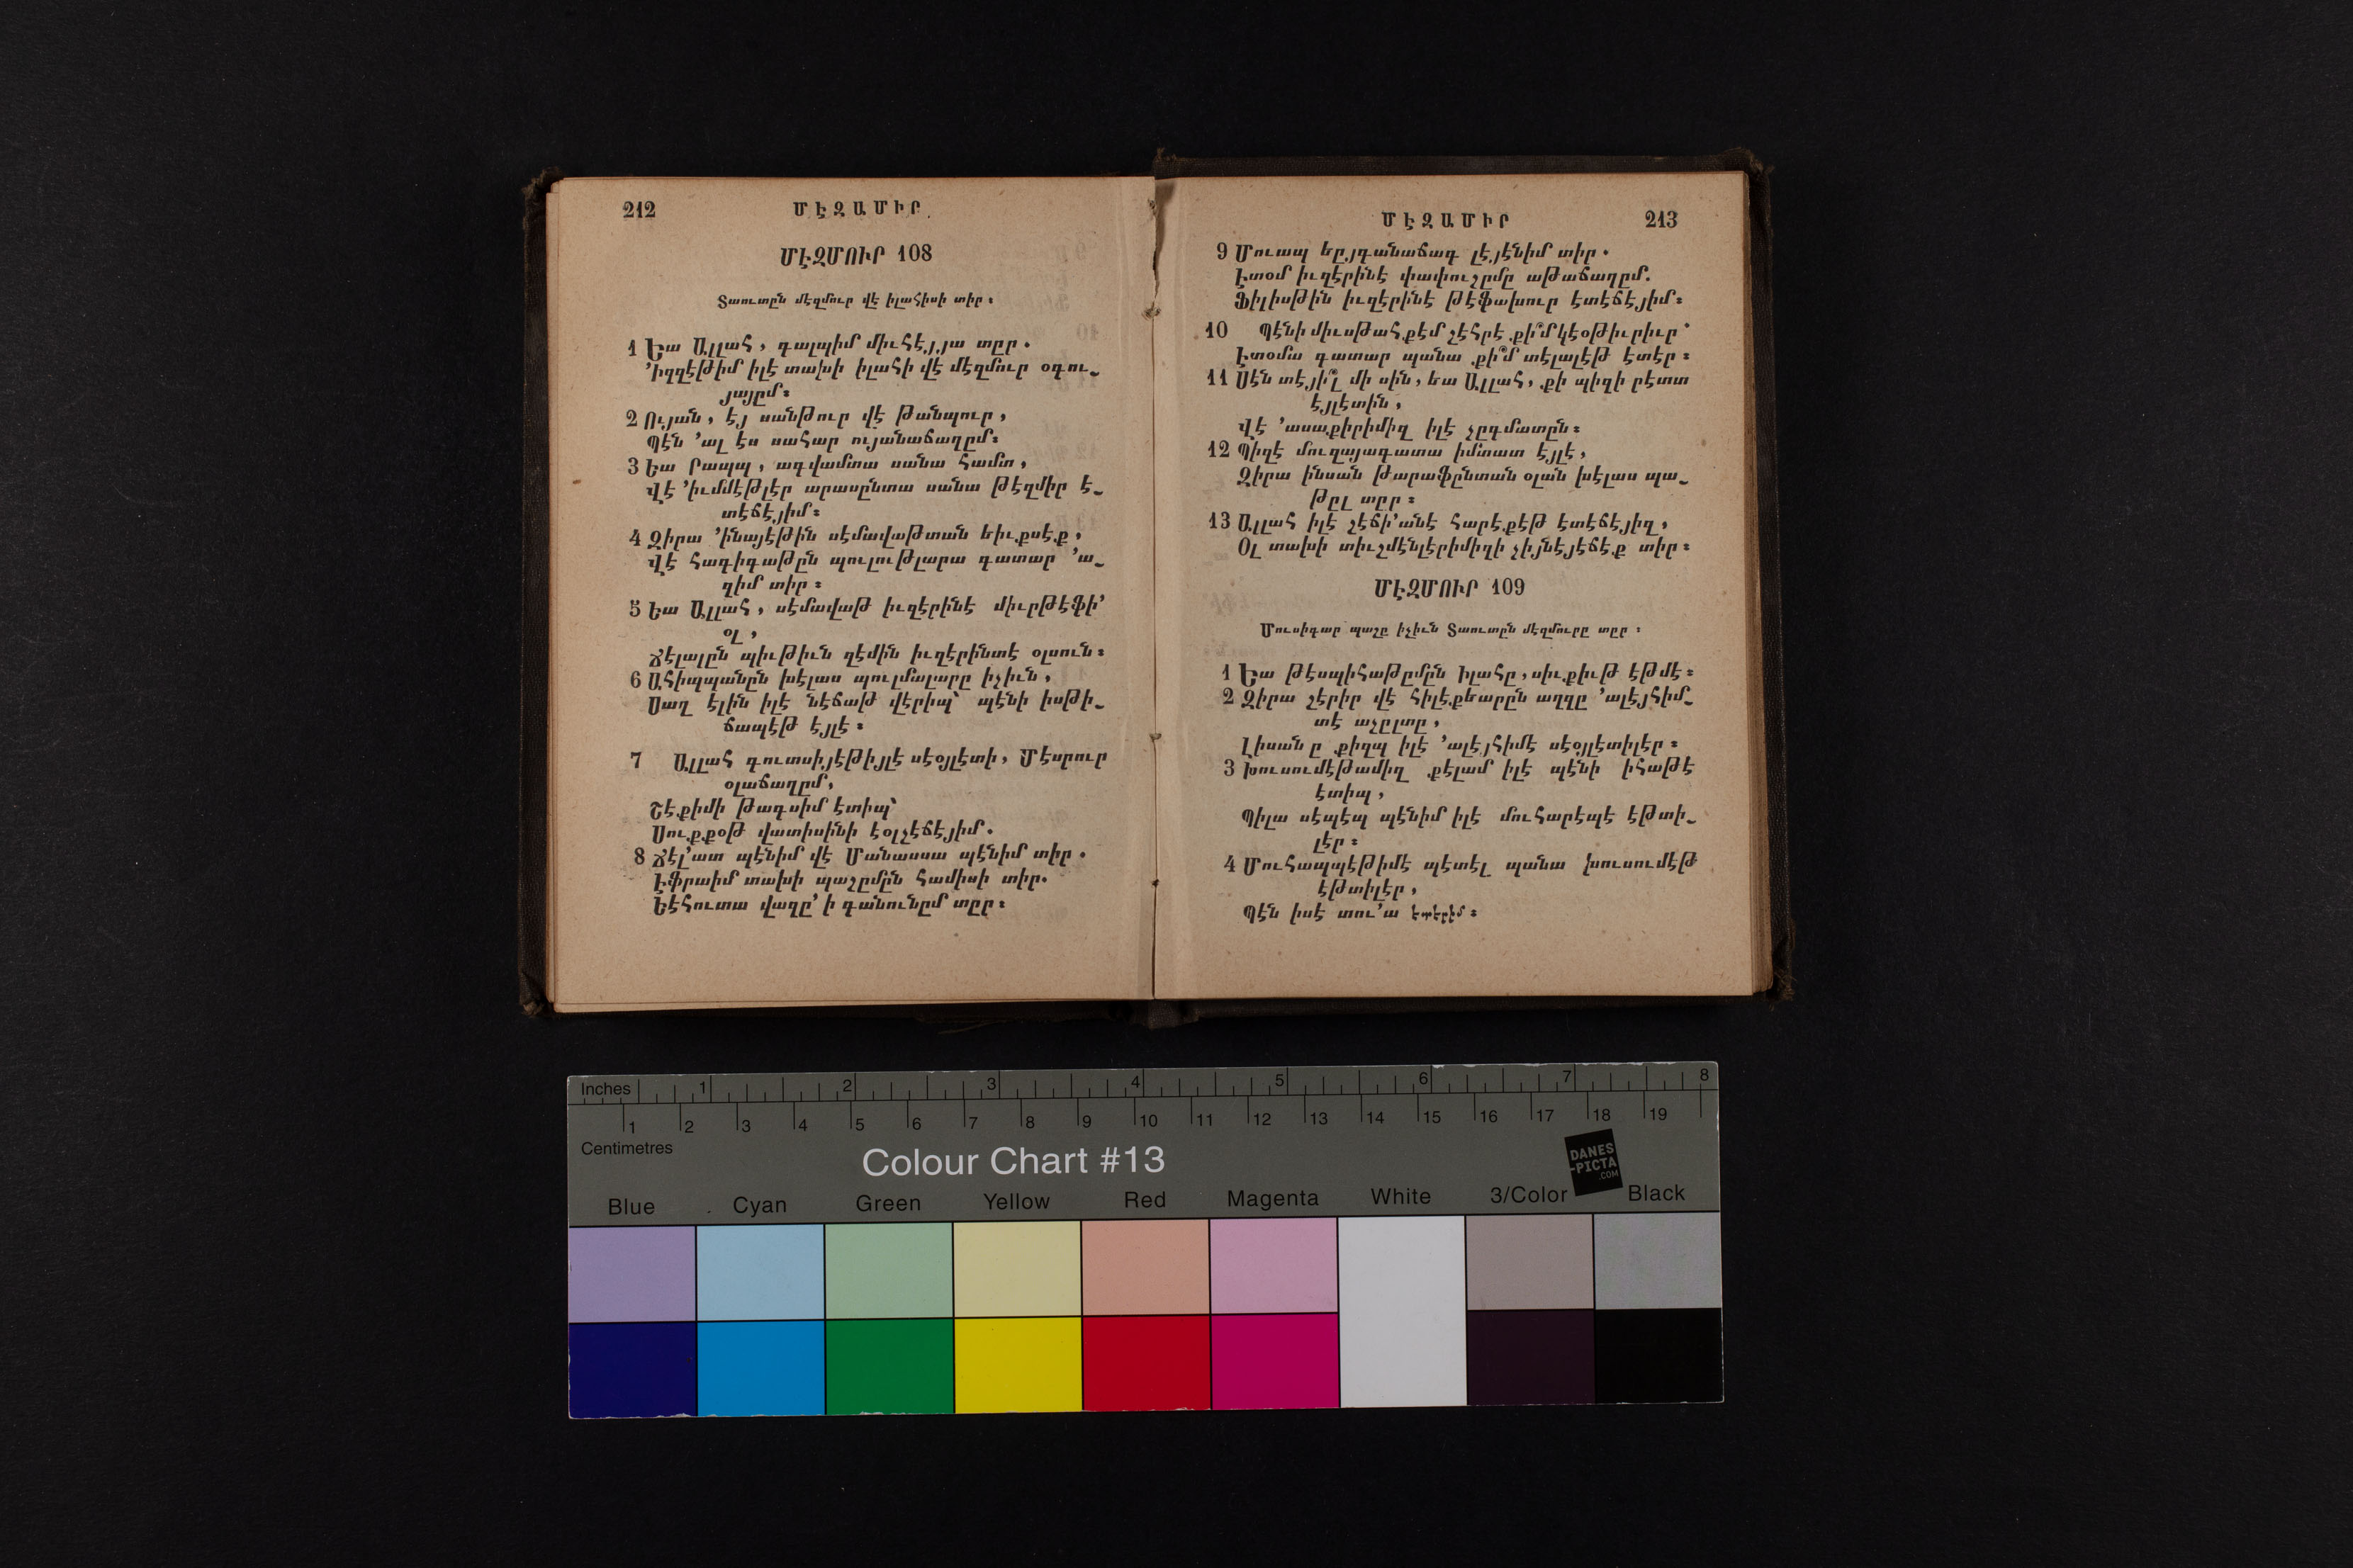 212
ՄԷԶԱՄԻՐ
ՄԷԶՄՈՒՐ 108
Տաուտըն մէզմուր վէ իլահիսի տիր։
1 Եա Ալլահ, գալպիմ միւհէյյա տըր.
՚Իզզէթիմ իլէ տախի իլահի վէ մէզմուր օգու֊
յայըմ։
2 Ույան, էյ սանթուր վէ թանպուր,
Պէն ՚ալ էս սահար ույանաճաղըմ։
3 Եա Րապպ, ագվամտա սանա համտ,
Վէ ՚իւմմէթլէր արասընտա սանա թէզմիր է֊
տէճէյիմ։
4 Զիրա ՚ինայէթին սէմավաթտան եիւքսէք,
Վէ հագիգաթըն պուլութլարա գատար ՚ա֊
զիմ տիր։
5 Եա Ալլահ, սէմավաթ իւզէրինէ միւրթէֆի՚
օլ,
Ճէլալըն պիւթիւն զէմին իւզէրինտէ օլսուն։
6 Ահիպպանըն խէլաս պուլմալարը իչիւն,
Սաղ էլին իլէ նէճաթ վէրիպ՝ պէնի իսթի֊
ճապէթ էյլէ։
7 Ալլահ գուտսիյէթիյլէ սէօյլէտի, Մէսրուր
օլաճաղըմ,
Շէքիմի թագսիմ էտիպ՝
Սուքքօթ վատիսինի էօլչէճէյիմ.
8 Ճէլ՚ատ պէնիմ վէ Մանասսա պէնիմ տիր.
Էֆրաիմ տախի պաշըմըն համիսի տիր.
Եէհուտա վազը՚ ի գանունըմ տըր։
ՄԷԶԱՄԻՐ
213
9 Մուապ եըյգանաճագ լէյէնիմ տիր.
Էտօմ իւզէրինէ փափուշըմը աթաճաղըմ.
Ֆիլիսթին իւզէրինէ թէֆախուր էտէճէյիմ։
10 Պէնի միւսթահքէմ շէհրէ քի՞մ կէօթիւրիւր՝
Էտօմա գատար պանա քի՞մ տէլալէթ էտէր։
11 Սէն տէյի՞լ մի սին, եա Ալլահ, քի պիզի րէտտ
էյլէտին,
Վէ ՚ասաքիրիմիզ իլէ չըգմատըն։
12 Պիզէ մուզայագատա իմտատ էյլէ,
Զիրա ինսան թարաֆընտան օլան խէլաս պա֊
թըլ տըր։
13 Ալլահ իլէ շէճի՚անէ հարէքէթ էտէճէյիզ,
Օլ տախի տիւշմէնլէրիմիզի չիյնէյէճէք տիր։
ՄԷԶՄՈՒՐ 109
Մուսիգար պաշը իչիւն Տաուտըն մէզմուրը տըր։
1 Եա թէսպիհաթըմըն Իլահը, սիւքիւթ էթմէ։
2 Զիրա շէրիր վէ հիլէքեարըն աղզը ՚ալէյհիմ֊
տէ աչըլտը,
Լիսան ը քիզպ իլէ ՚ալէյհիմէ սէօյլէտիլէր։
3 Խուսումէթամիզ քէլամ իլէ պէնի իհաթէ
էտիպ,
Պիլա սէպէպ պէնիմ իլէ մուհարէպէ էթտի֊
լէր։
4 Մուհապպէթիմէ պէտէլ պանա խուսումէթ
էթտիլէր,
Պէն իսէ տու՚ա էտէրիմ։
Inches 1 2 3 4 5 6 7 8
1 2 3 4 5 6 7 8 9 10 11 12 13 14 15 16 17 18 19
Centimetres
Colour Chart #13
DANES
-PICTA
.COM
Blue Cyan Green Yellow Red Magenta White 3/Color Black